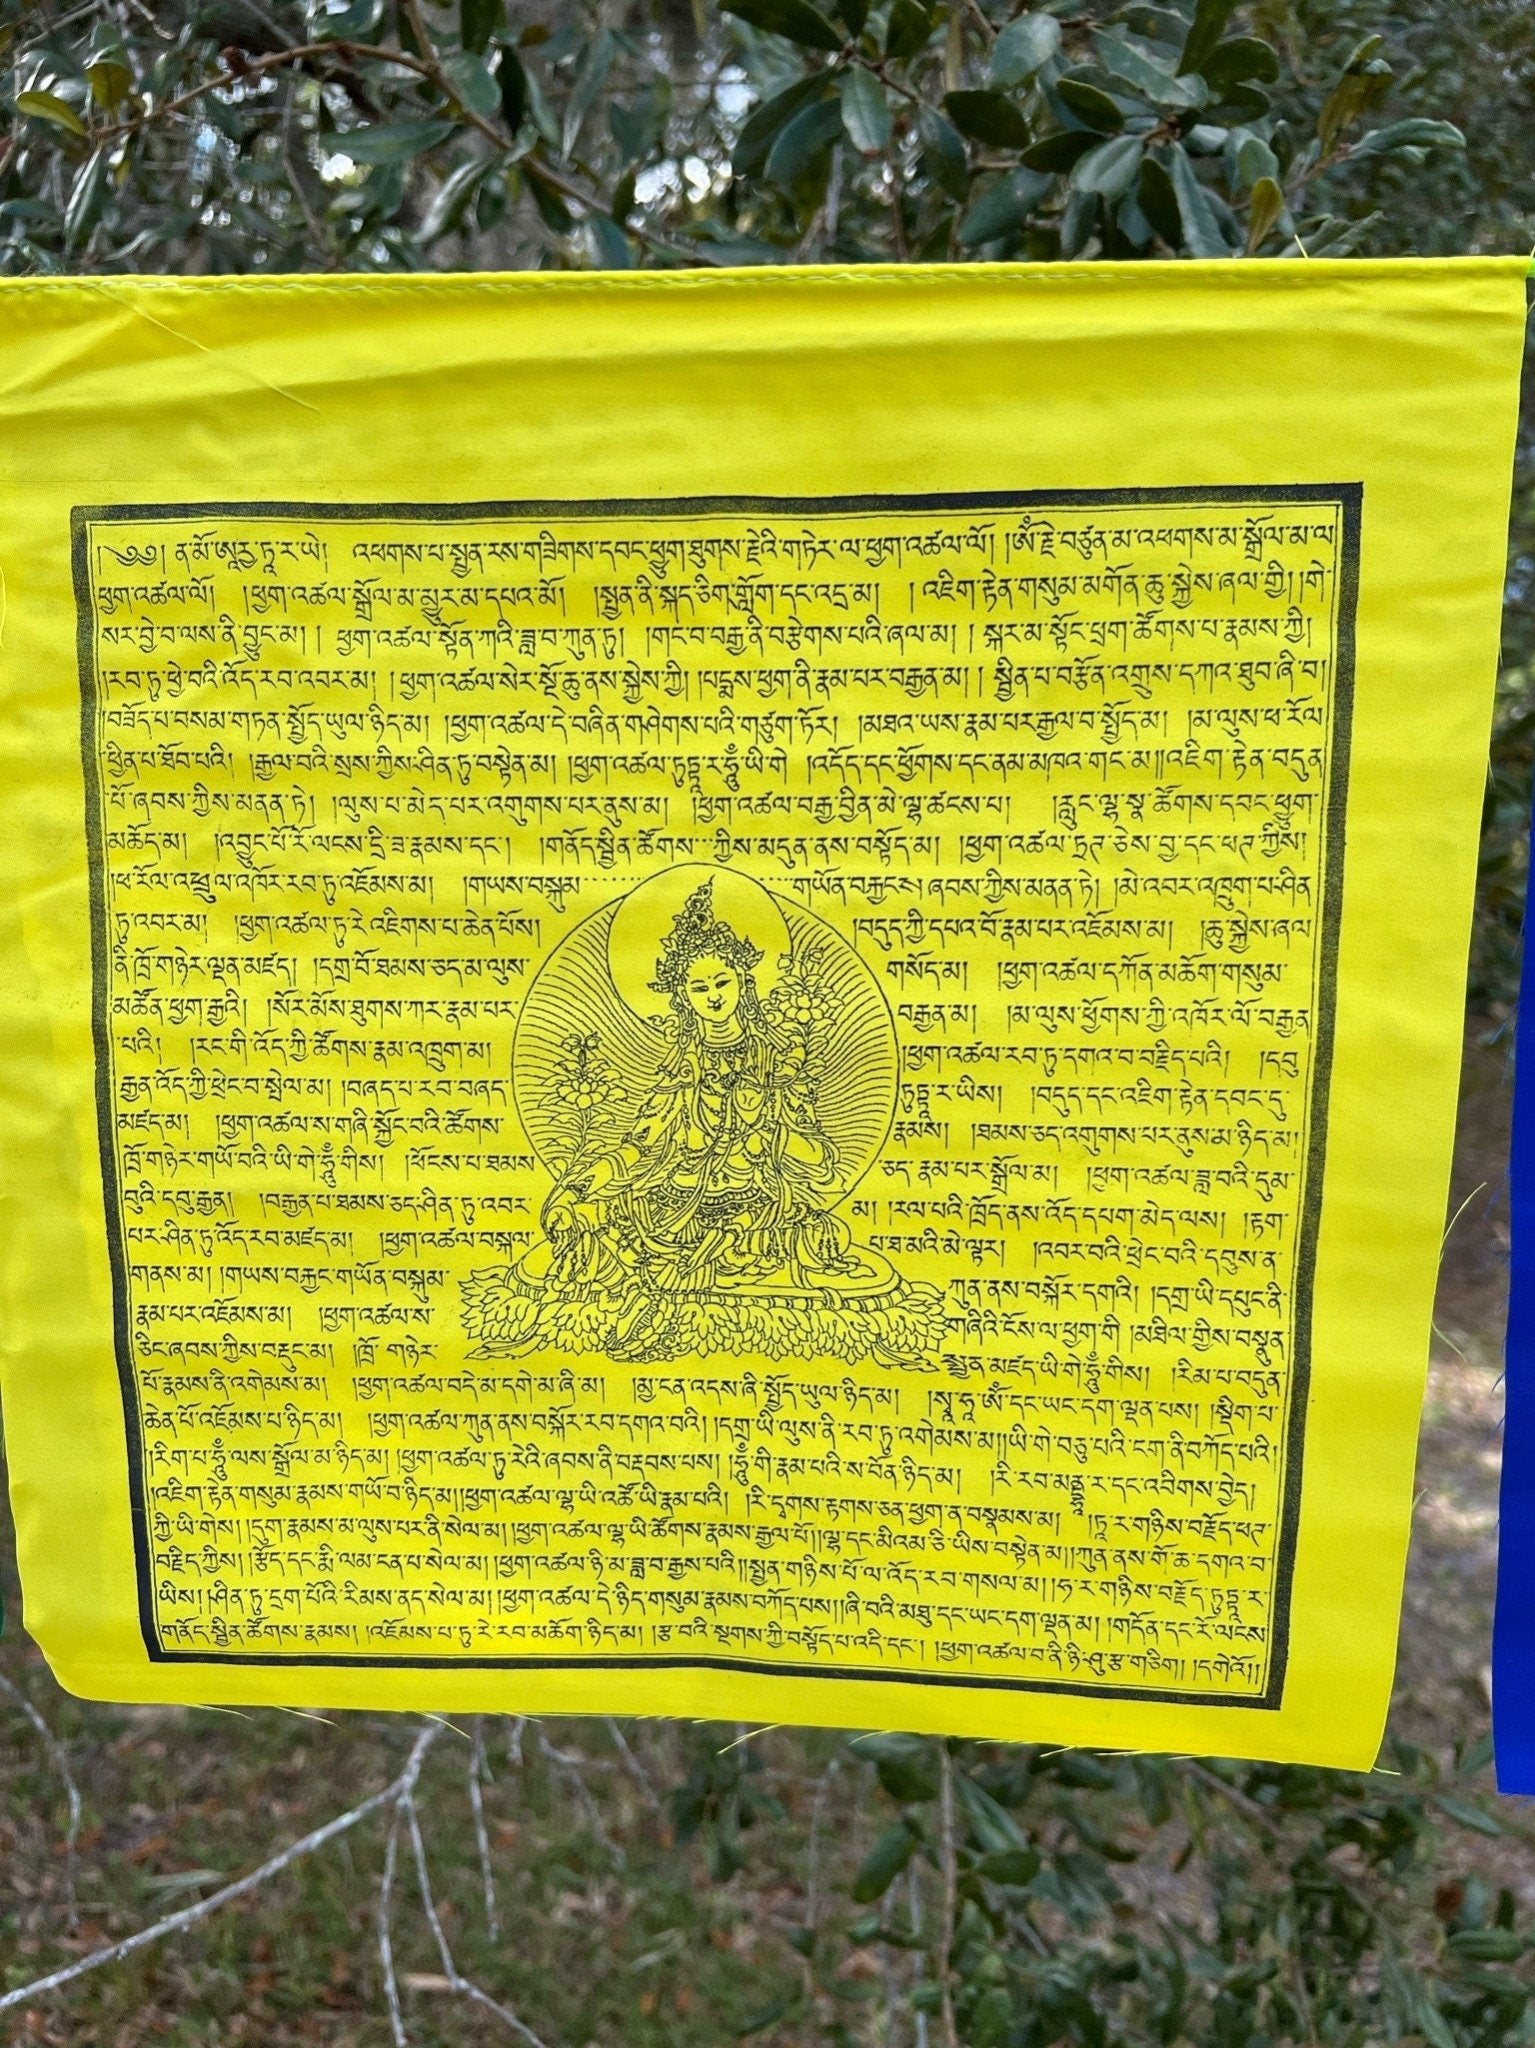 ༄༅། ན་མོ་ཨཱརྱ་ཏཱ་ར་ཡེ། འཕགས་པ་སྤྱན་རས་གཟིགས་དབང་ཕྱུག་ཐུགས་རྗེའི་གཏེར་ལ་ཕྱག་འཚལ་ལོ། །ཨོཾ་རྗེ་བཙུན་མ་འཕགས་མ་སྒྲོལ་མ་ལ
ཕྱག་འཚལ་ལོ། །ཕྱག་འཚལ་སྒྲོལ་མ་མྱུར་མ་དཔའ་མོ། །སྤྱན་ནི་སྐད་ཅིག་གློག་དང་འདྲ་མ། །འཇིག་རྟེན་གསུམ་མགོན་ཆུ་སྐྱེས་ཞལ་གྱི། །གེ་
སར་བྱེ་བ་ལས་ནི་བྱུང་མ། །ཕྱག་འཚལ་སྟོན་ཀའི་ཟླ་བ་ཀུན་ཏུ། །གང་བ་བརྒྱ་ནི་བརྩེགས་པའི་ཞལ་མ། །སྐར་མ་སྟོང་ཕྲག་ཚོགས་པ་རྣམས་ཀྱི།
།རབ་ཏུ་ཕྱེ་བའི་འོད་རབ་འབར་མ། །ཕྱག་འཚལ་སེར་སྔོ་ཆུ་ནས་སྐྱེས་ཀྱི། །པདྨས་ཕྱག་ནི་རྣམ་པར་བརྒྱན་མ། །སྦྱིན་པ་བརྩོན་འགྲུས་དཀའ་ཐུབ་ཞི་བ།
།བཟོད་པ་བསམ་གཏན་སྤྱོད་ཡུལ་ཉིད་མ། །ཕྱག་འཚལ་དེ་བཞིན་གཤེགས་པའི་གཙུག་ཏོར། །མཐའ་ཡས་རྣམ་པར་རྒྱལ་བ་སྤྱོད་མ། །མ་ལུས་ཕ་རོལ་
ཕྱིན་པ་ཐོབ་པའི། །རྒྱལ་བའི་སྲས་ཀྱིས་ཤིན་ཏུ་བསྟེན་མ། །ཕྱག་འཚལ་ཏུཏྟཱ་ར་ཧཱུྃ་ཡི་གེ །འདོད་དང་ཕྱོགས་དང་ནམ་མཁའ་གང་མ། །འཇིག་རྟེན་བདུན་
པོ་ཞབས་ཀྱིས་མནན་ཏེ། །ལུས་པ་མེད་པར་འགུགས་པར་ནུས་མ། །ཕྱག་འཚལ་བརྒྱ་བྱིན་མེ་ལྷ་ཚངས་པ། །རླུང་ལྷ་སྣ་ཚོགས་དབང་ཕྱུག་
མཆོད་མ། །འབྱུང་པོ་རོ་ལངས་དྲི་ཟ་རྣམས་དང་། །གནོད་སྦྱིན་ཚོགས་ཀྱིས་མདུན་ནས་བསྟོད་མ། །ཕྱག་འཚལ་ཏྲཊ་ཅེས་བྱ་དང་ཕཊ་ཀྱིས།
།ཕ་རོལ་འཕྲུལ་འཁོར་རབ་ཏུ་འཇོམས་མ། །གཡས་བསྐུམ་གཡོན་བརྐྱངས་ཞབས་ཀྱིས་མནན་ཏེ། །མེ་འབར་འཁྲུག་པ་ཤིན་
ཏུ་འབར་མ། །ཕྱག་འཚལ་ཏུ་རེ་འཇིགས་པ་ཆེན་པོས། །བདུད་ཀྱི་དཔའ་བོ་རྣམ་པར་འཇོམས་མ། །ཆུ་སྐྱེས་ཞལ་
ནི་ཁྲོ་གཉེར་ལྡན་མཛད། །དགྲ་བོ་ཐམས་ཅད་མ་ལུས་གསོད་མ། །ཕྱག་འཚལ་དཀོན་མཆོག་གསུམ་
མཚོན་ཕྱག་རྒྱའི། །སོར་མོས་ཐུགས་ཀར་རྣམ་པར་བརྒྱན་མ། །མ་ལུས་ཕྱོགས་ཀྱི་འཁོར་ལོ་བརྒྱན་
པའི། །རང་གི་འོད་ཀྱི་ཚོགས་རྣམ་འཁྲུག་མ། །ཕྱག་འཚལ་རབ་ཏུ་དགའ་བ་བརྗིད་པའི། །དབུ་
རྒྱན་འོད་ཀྱི་ཕྲེང་བ་སྤེལ་མ། །བཞད་པ་རབ་བཞད་ཏུཏྟཱ་ར་ཡིས། །བདུད་དང་འཇིག་རྟེན་དབང་དུ་
མཛད་མ། །ཕྱག་འཚལ་ས་གཞི་སྐྱོང་བའི་ཚོགས་རྣམས། །ཐམས་ཅད་འགུགས་པར་ནུས་མ་ཉིད་མ།
།ཁྲོ་གཉེར་གཡོ་བའི་ཡི་གེ་ཧཱུྃ་གིས། །ཕོངས་པ་ཐམས་ཅད་རྣམ་པར་སྒྲོལ་མ། །ཕྱག་འཚལ་ཟླ་བའི་དུམ་
བུའི་དབུ་རྒྱན། །བརྒྱན་པ་ཐམས་ཅད་ཤིན་ཏུ་འབར་མ། །རལ་པའི་ཁྲོད་ནས་འོད་དཔག་མེད་ལས། །རྟག་
པར་ཤིན་ཏུ་འོད་རབ་མཛད་མ། །ཕྱག་འཚལ་བསྐལ་པ་ཐ་མའི་མེ་ལྟར། །འབར་བའི་ཕྲེང་བའི་དབུས་ན་
གནས་མ། །གཡས་བརྐྱང་གཡོན་བསྐུམ་ཀུན་ནས་བསྐོར་དགའི། །དགྲ་ཡི་དཔུང་ནི་
རྣམ་པར་འཇོམས་མ། །ཕྱག་འཚལ་ས་གཞིའི་ངོས་ལ་ཕྱག་གི །མཐིལ་གྱིས་བསྣུན་
ཅིང་ཞབས་ཀྱིས་བརྡུང་མ། །ཁྲོ་གཉེར་སྤྱན་མཛད་ཡི་གེ་ཧཱུྃ་གིས། །རིམ་པ་བདུན་
པོ་རྣམས་ནི་འགེམས་མ། །ཕྱག་འཚལ་བདེ་མ་དགེ་མ་ཞི་མ། །མྱ་ངན་འདས་ཞི་སྤྱོད་ཡུལ་ཉིད་མ། །སྭཱ་ཧཱ་ཨོཾ་དང་ཡང་དག་ལྡན་པས། །སྡིག་པ་
ཆེན་པོ་འཇོམས་པ་ཉིད་མ། །ཕྱག་འཚལ་ཀུན་ནས་བསྐོར་རབ་དགའ་བའི། །དགྲ་ཡི་ལུས་ནི་རབ་ཏུ་འགེམས་མ། །ཡི་གེ་བཅུ་པའི་ངག་ནི་བཀོད་པའི།
།རིག་པ་ཧཱུྃ་ལས་སྒྲོལ་མ་ཉིད་མ། །ཕྱག་འཚལ་ཏུ་རེའི་ཞབས་ནི་བརྡབས་པས། །ཧཱུྃ་གི་རྣམ་པའི་ས་བོན་ཉིད་མ། །རི་རབ་མནྡཱ་ར་དང་འབིགས་བྱེད།
།འཇིག་རྟེན་གསུམ་རྣམས་གཡོ་བ་ཉིད་མ། །ཕྱག་འཚལ་ལྷ་ཡི་འཚོ་ཡི་རྣམ་པའི། །རི་དྭགས་རྟགས་ཅན་ཕྱག་ན་བསྣམས་མ། །ཏཱ་ར་གཉིས་བརྗོད་ཕཊ་
ཀྱི་ཡི་གེས། །དུག་རྣམས་མ་ལུས་པར་ནི་སེལ་མ། །ཕྱག་འཚལ་ལྷ་ཡི་ཚོགས་རྣམས་རྒྱལ་པོ། །ལྷ་དང་མིའམ་ཅི་ཡིས་བསྟེན་མ། །ཀུན་ནས་གོ་ཆ་དགའ་བ་
བརྗིད་ཀྱིས། །རྩོད་དང་རྨི་ལམ་ངན་པ་སེལ་མ། །ཕྱག་འཚལ་ཉི་མ་ཟླ་བ་རྒྱས་པའི། །སྤྱན་གཉིས་པོ་ལ་འོད་རབ་གསལ་མ། །ཧ་ར་གཉིས་བརྗོད་ཏུཏྟཱ་ར་
ཡིས། །ཤིན་ཏུ་དྲག་པོའི་རིམས་ནད་སེལ་མ། །ཕྱག་འཚལ་དེ་ཉིད་གསུམ་རྣམས་བཀོད་པས། །ཞི་བའི་མཐུ་དང་ཡང་དག་ལྡན་མ། །གདོན་དང་རོ་ལངས་
གནོད་སྦྱིན་ཚོགས་རྣམས། །འཇོམས་པ་ཏུ་རེ་རབ་མཆོག་ཉིད་མ། །རྩ་བའི་སྔགས་ཀྱི་བསྟོད་པ་འདི་དང་། །ཕྱག་འཚལ་བ་ནི་ཉི་ཤུ་རྩ་གཅིག །དགེའོ།།